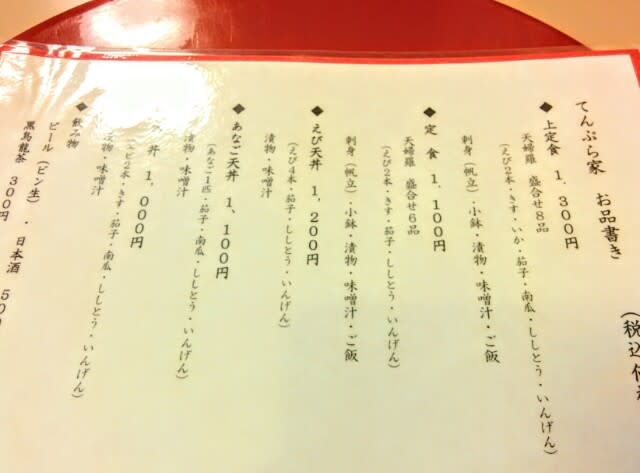 (税込価格
てんぷら家 お品書き
◆上定食 1,300円
天婦羅 盛合せ8品
(えび2本・きす・いか・茄子・南瓜・ししとう・いんげん)
刺身(帆立)・小鉢・漬物・味噌汁・ご飯
◆定食 1,100円
天婦羅 盛合せ6品
(えび2本・きす・茄子・ししとう・いんげん)
刺身(帆立)・小鉢・漬物・味噌汁・ご飯
◆えび天丼 1,200円
(えび4本・茄子・ししとう・いんげん)
漬物・味噌汁
◆あなご天丼 1,100円
(あなご1匹・茄子・南瓜・ししとう・いんげん)
漬物・味噌汁
丼 1,000円
2本・きす・茄子・南瓜・ししとう・いんげん)
漬物・味噌汁
◆飲み物
ビール(ビン生)・日本酒 50
黒烏龍茶 300円